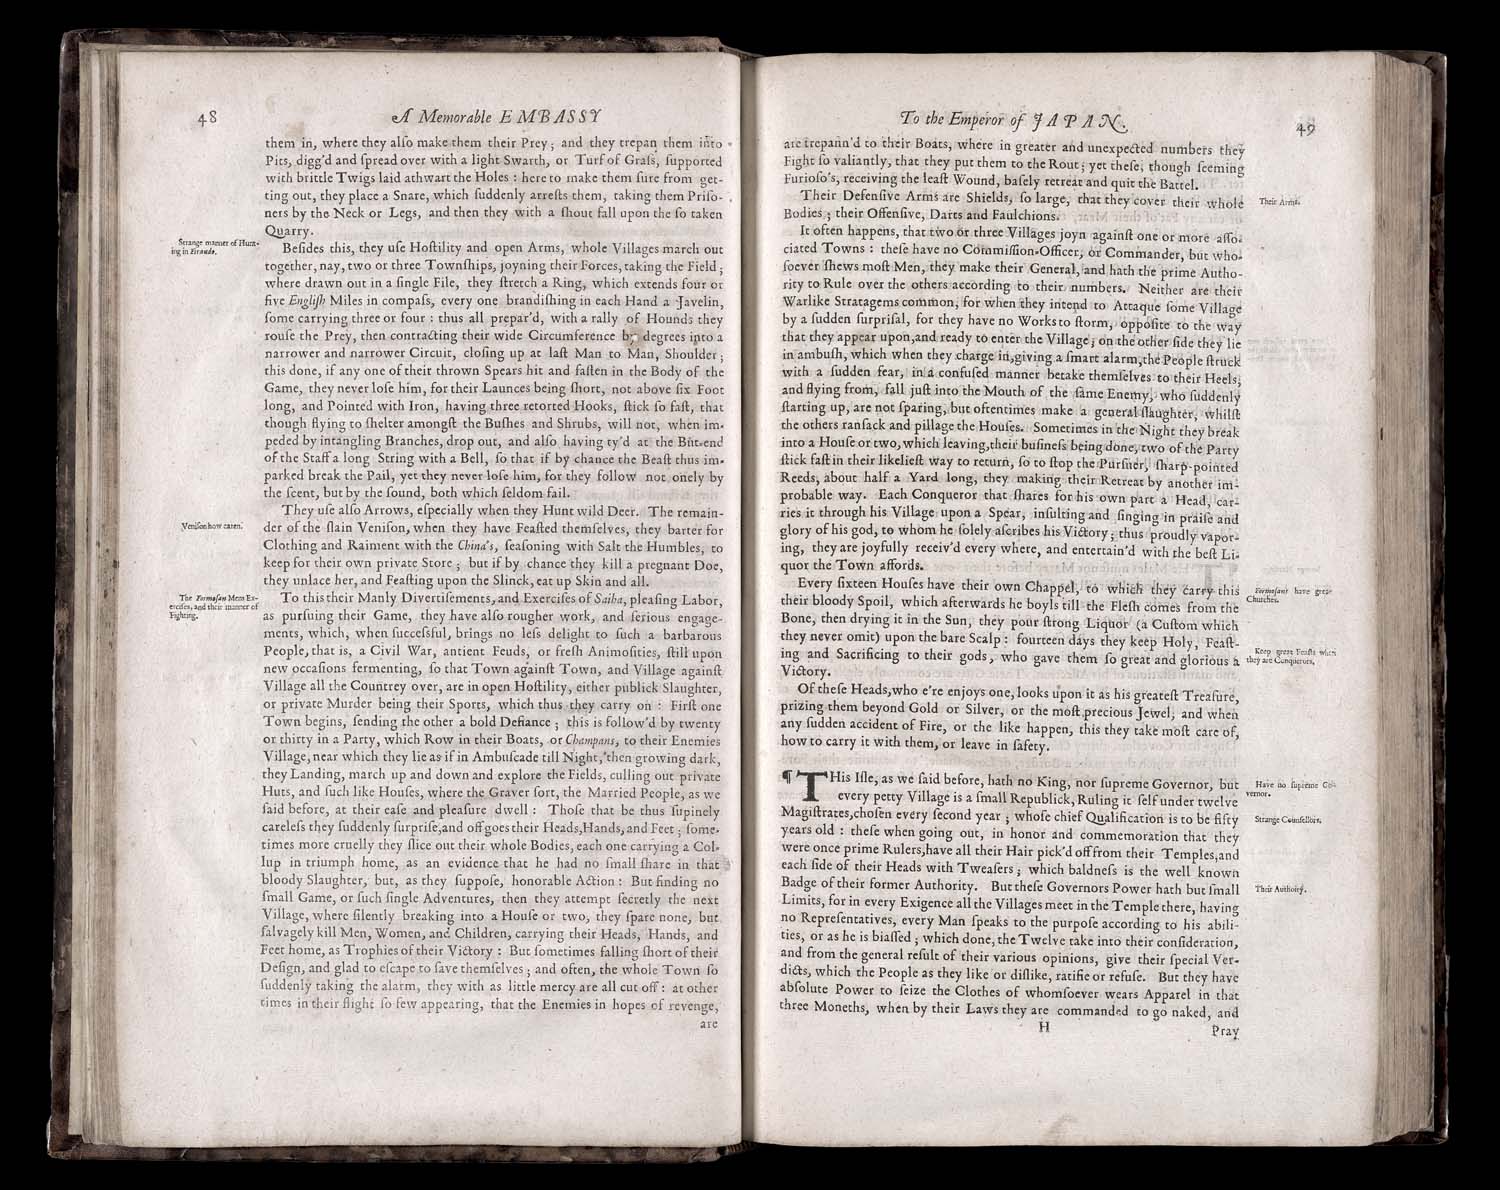 48
A Memorable EMBASSY
them in, where they alſo make them their Prey; and they trepan them into
Pits, digg'd and ſpread over with a light Swarth, or Turf of Graſs, ſupported
with brittle Twigs laid athwart the Holes: here to make them ſure from get-
ting out, they place a Snare, which ſuddenly arreſts them, taking them Priſo-
ners by the Neck or Legs, and then they with a ſhout fall upon the ſo taken
Quarry.
Strange manner of Hunt-
ing in Firando.
Beſides this, they uſe Hoſtility and open Arms, whole Villages march out
together, nay, two or three Townſhips, joyning their Forces, taking the Field;
where drawn out in a ſingle File, they ſtretch a Ring, which extends four or
five Engliſh Miles in compaſs, every one brandiſhing in each Hand a Javelin,
ſome carrying three or four: thus all prepar'd, with a rally of Hounds they
rouſe the Prey, then contracting their wide Circumference by degrees into a
narrower and narrower Circuit, cloſing up at laſt Man to Man, Shoulder;
this done, if any one of their thrown Spears hit and faſten in the Body of the
Game, they never loſe him, for their Launces being ſhort, not above ſix Foot
long, and Pointed with Iron, having three retorted Hooks, ſtick ſo faſt, that
though flying to ſhelter amongſt the Buſhes and Shrubs, will not, when im-
peded by intangling Branches, drop out, and alſo having ty'd at the But-end
of the Staff a long String with a Bell, ſo that if by chance the Beaſt thus im-
parked break the Pail, yet they never loſe him, for they follow not onely by
the ſcent, but by the ſound, both which ſeldom fail.
Veniſon how eaten.
They uſe alſo Arrows, eſpecially when they Hunt wild Deer. The remain-
der of the ſlain Veniſon, when they have Feaſted themſelves, they barter for
Clothing and Raiment with the China's, ſeaſoning with Salt the Humbles, to
keep for their own private Store; but if by chance they kill a pregnant Doe,
they unlace her, and Feaſting upon the Slinck, eat up Skin and all.
The Formoſan Mens Ex-
erciſes, and their manner of
Fighting.
To this their Manly Divertiſements, and Exerciſes of Saiba, pleaſing Labor,
as purſuing their Game, they have alſo rougher work, and ſerious engage-
ments, which, when ſucceſsful, brings no leſs delight to ſuch a barbarous
People, that is, a Civil War, antient Feuds, or freſh Animoſities, ſtill upon
new occaſions fermenting, ſo that Town againſt Town, and Village againſt
Village all the Countrey over, are in open Hoſtility, either publick Slaughter,
or private Murder being their Sports, which thus they carry on: Firſt one
Town begins, ſending the other a bold Defiance; this is follow'd by twenty
or thirty in a Party, which Row in their Boats, or Champans, to their Enemies
Village, near which they lie as if in Ambuſcade till Night, then growing dark,
they Landing, march up and down and explore the Fields, culling out private
Huts, and ſuch like Houſes, where the Graver ſort, the Married People, as we
ſaid before, at their eaſe and pleaſure dwell: Thoſe that be thus ſupinely
careleſs they ſuddenly ſurpriſe, and off goes their Heads, Hands, and Feet; ſome-
times more cruelly they ſlice out their whole Bodies, each one carrying a Col-
lup in triumph home, as an evidence that he had no ſmall ſhare in that
bloody Slaughter, but, as they ſuppoſe, honorable Action: But finding no
ſmall Game, or ſuch ſingle Adventures, then they attempt ſecretly the next
Village, where ſilently breaking into a Houſe or two, they ſpare none, but
ſalvagely kill Men, Women, and Children, carrying their Heads, Hands, and
Feet home, as Trophies of their Victory: But ſometimes falling ſhort of their
Deſign, and glad to eſcape to ſave themſelves; and often, the whole Town ſo
ſuddenly taking the alarm, they with as little mercy are all cut off: at other
times in their flight ſo few appearing, that the Enemies in hopes of revenge,
are
To the Emperor of JAPAN.
49
are trepann'd to their Boats, where in greater and unexpected numbers they
Fight ſo valiantly, that they put them to the Rout; yet theſe, though ſeeming
Furioſo's, receiving the leaſt Wound, baſely retreat and quit the Battel.
Their Arms.
Their Defenſive Arms are Shields, ſo large, that they cover their whole
Bodies; their Offenſive, Darts and Faulchions.
It often happens, that two or three Villages joyn againſt one or more aſſo-
ciated Towns: theſe have no Commiſſion-Officer, or Commander, but who-
ſoever ſhews moſt Men, they make their General, and hath the prime Autho-
rity to Rule over the others according to their numbers. Neither are their
Warlike Stratagems common, for when they intend to Attaque ſome Village
by a ſudden ſurpriſal, for they have no Works to ſtorm, oppoſite to the way
that they appear upon, and ready to enter the Village; on the other ſide they lie
in ambuſh, which when they charge in, giving a ſmart alarm, the People ſtruck
with a ſudden fear, in a confuſed manner betake themſelves to their Heels,
and flying from, fall juſt into the Mouth of the ſame Enemy, who ſuddenly
ſtarting up, are not ſparing, but oftentimes make a general ſlaughter, whilſt
the others ranſack and pillage the Houſes. Sometimes in the Night they break
into a Houſe or two, which leaving, their buſineſs being done, two of the Party
ſtick faſt in their likelieſt way to return, ſo to ſtop the Purſuer, ſharp-pointed
Reeds, about half a Yard long, they making their Retreat by another im-
probable way. Each Conqueror that ſhares for his own part a Head, car-
ries it through his Village upon a Spear, inſulting and ſinging in praiſe and
glory of his god, to whom he ſolely aſcribes his Victory; thus proudly vapor-
ing, they are joyfully receiv'd every where, and entertain'd with the beſt Li-
quor the Town affords.
Formoſans have great
Churches.
Every ſixteen Houſes have their own Chappel, to which they carry this
their bloody Spoil, which afterwards he boyls till the Fleſh comes from the
Bone, then drying it in the Sun, they pour ſtrong Liquor (a Cuſtom which
they never omit) upon the bare Scalp: fourteen days they keep Holy, Feaſt-
Keep great Feaſts when
they are Conquerors.
ing and Sacrificing to their gods, who gave them ſo great and glorious a
Victory.
Of theſe Heads, who e're enjoys one, looks upon it as his greateſt Treaſure,
prizing them beyond Gold or Silver, or the moſt precious Jewel, and when
any ſudden accident of Fire, or the like happen, this they take moſt care of,
how to carry it with them, or leave in ſafety.
Have no ſupreme Go-
vernor.
¶ THis Iſle, as we ſaid before, hath no King, nor ſupreme Governor, but
every petty Village is a ſmall Republick, Ruling it ſelf under twelve
Strange Counſellors.
Magiſtrates, choſen every ſecond year; whoſe chief Qualification is to be fifty
years old: theſe when going out, in honor and commemoration that they
were once prime Rulers, have all their Hair pick'd off from their Temples, and
each ſide of their Heads with Tweaſers; which baldneſs is the well known
Their Authority.
Badge of their former Authority. But theſe Governors Power hath but ſmall
Limits, for in every Exigence all the Villages meet in the Temple there, having
no Repreſentatives, every Man ſpeaks to the purpoſe according to his abili-
ties, or as he is biaſſed; which done, the Twelve take into their conſideration,
and from the general reſult of their various opinions, give their ſpecial Ver-
dicts, which the People as they like or diſlike, ratifie or refuſe. But they have
abſolute Power to ſeize the Clothes of whomſoever wears Apparel in that
three Moneths, when by their Laws they are commanded to go naked, and
H
Pray